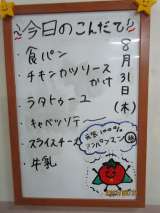 今日のこんだて!
8月31日(木)
・食パン
・チキンカツソースかけ
・ラタトゥーユ
・キャベツソテー
・スライスチーズ
・牛乳
元気100%
アンパンマン